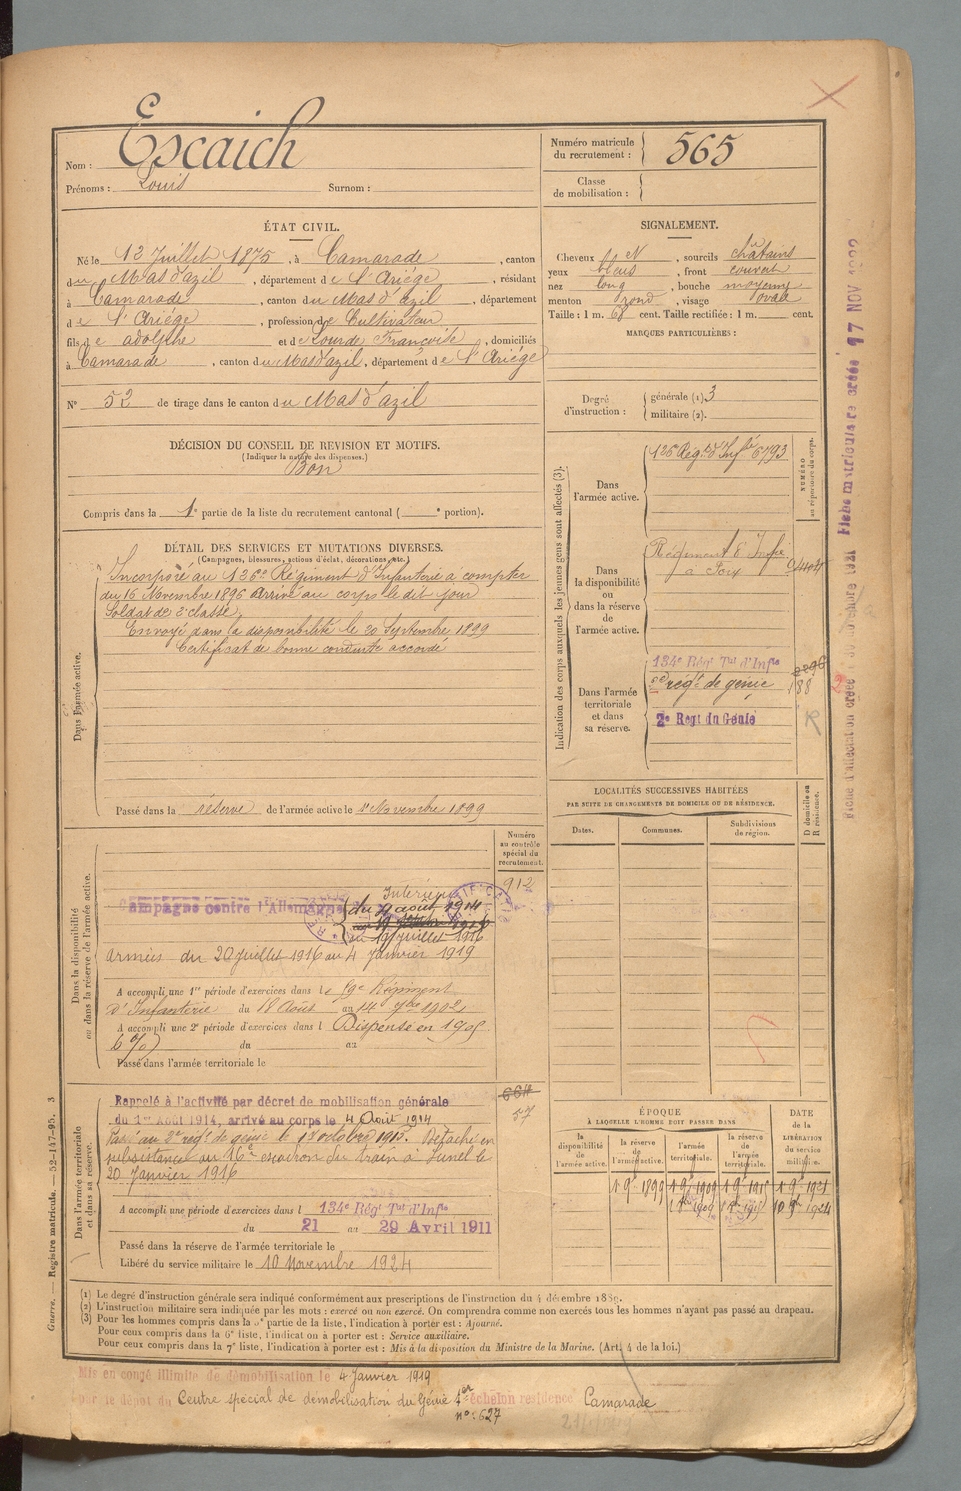 Nom : Escaich
Prénoms : Louis Surnom :
Numéro matricule du recrutement : 565
Classe de mobilisation :
ÉTAT CIVIL.
Né le 12 Juillet 1875, à Camarade, canton
du Mas d'azil, département de l'Ariége, résidant
à Camarade, canton du Mas d'azil, département
de l'Ariége, profession de Cultivateur
fils de adolphe et de Lourde Françoise, domiciliés
à Camarade, canton du Mas d'azil, département de l'Ariége
N° 52 de tirage dans le canton du Mas d'azil
SIGNALEMENT.
Cheveux N, sourcils châtains
yeux bleus, front couvert
nez long, bouche moyenne
menton rond, visage ovale
Taille : 1 m. 68 cent. Taille rectifiée : 1 m. cent.
MARQUES PARTICULIÈRES :
Degré d'instruction : générale (1) 3
militaire (2).
DÉCISION DU CONSEIL DE REVISION ET MOTIFS.
(Indiquer la nature des dispenses.)
Bon
Compris dans la 1e partie de la liste du recrutement cantonal ( e portion).
DÉTAIL DES SERVICES ET MUTATIONS DIVERSES.
(Campagnes, blessures, actions d'éclat, décorations, etc.)
Dans l'armée active.
Incorporé au 126e Régiment d'Infanterie à compter
du 16 Novembre 1896 Arrivé au corps le dit jour
Soldat de 2e classe.
Envoyé dans la disponibilité le 20 Septembre 1899
Certificat de bonne conduite accordé
Passé dans la réserve de l'armée active le 1er Novembre 1899
Indication des corps auxquels les jeunes gens sont affectés (3).
NUMÉRO au répertoire du corps.
Dans l'armée active.
126 Reg.t d'Inf.ie 6793
Dans la disponibilité ou dans la réserve de l'armée active.
Régiment d'Infie
à Foix
Dans l'armée territoriale et dans sa réserve.
134e Régt Tal d'Infie 2296
2e régt de génie 188
2e Regt du Génie
R
LOCALITÉS SUCCESSIVES HABITÉES
PAR SUITE DE CHANGEMENTS DE DOMICILE OU DE RÉSIDENCE.
Dates. Communes. Subdivisions de région. D domicile ou R résidence.
Dans la disponibilité ou dans la réserve de l'armée active.
Numéro au contrôle spécial du recrutement.
912
Intérieur
Campagne contre l'Allemagne du 4 août 1914
au 19 juillet 1916
Armées du 20 Juillet 1916 au 4 Janvier 1919
A accompli une 1re période d'exercices dans le 59e Régiment
d'Infanterie du 18 Août au 14 7bre 1902
A accompli une 2e période d'exercices dans l Dispensé en 1905
du au
Passé dans l'armée territoriale le
Dans l'armée territoriale et dans sa réserve.
Rappelé à l'activité par décret de mobilisation générale
du 1er Août 1914, arrivé au corps le 4 Août 1914
57
Passé au 2e régt de génie le 1er octobre 1915. Détaché en
subsistance au 16e escadron du train à Lunel le
20 Janvier 1916
A accompli une période d'exercices dans l 134e Régt Tal d'Infie
du 21 au 29 Avril 1911
Passé dans la réserve de l'armée territoriale le
Libéré du service militaire le 10 Novembre 1924
ÉPOQUE
À LAQUELLE L'HOMME DOIT PASSER DANS
la disponibilité de l'armée active. la réserve de l'armée active. l'armée territoriale. la réserve de l'armée territoriale.
DATE de la LIBÉRATION du service militaire.
1 9bre 1899 1 9bre 1909 1 9bre 1915 1 9bre 1921
1 8bre 1909 1 8bre 1915 10 9bre 1924
(1) Le degré d'instruction générale sera indiqué conformément aux prescriptions de l'instruction du 4 décembre 1889.
(2) L'instruction militaire sera indiquée par les mots : exercé ou non exercé. On comprendra comme non exercés tous les hommes n'ayant pas passé au drapeau.
(3) Pour les hommes compris dans la 5e partie de la liste, l'indication à porter est : Ajourné.
Pour ceux compris dans la 6e liste, l'indication à porter est : Service auxiliaire.
Pour ceux compris dans la 7e liste, l'indication à porter est : Mis à la disposition du Ministre de la Marine. (Art. 4 de la loi.)
Mis en congé illimité de démobilisation le 4 Janvier 1919
par le dépôt du Centre spécial de démobilisation du Génie 1er échelon résidence Camarade
n° : 627
Guerre. — Registre matricule. — 52-147-95. 3
Fiche matriculaire créée 17 NOV